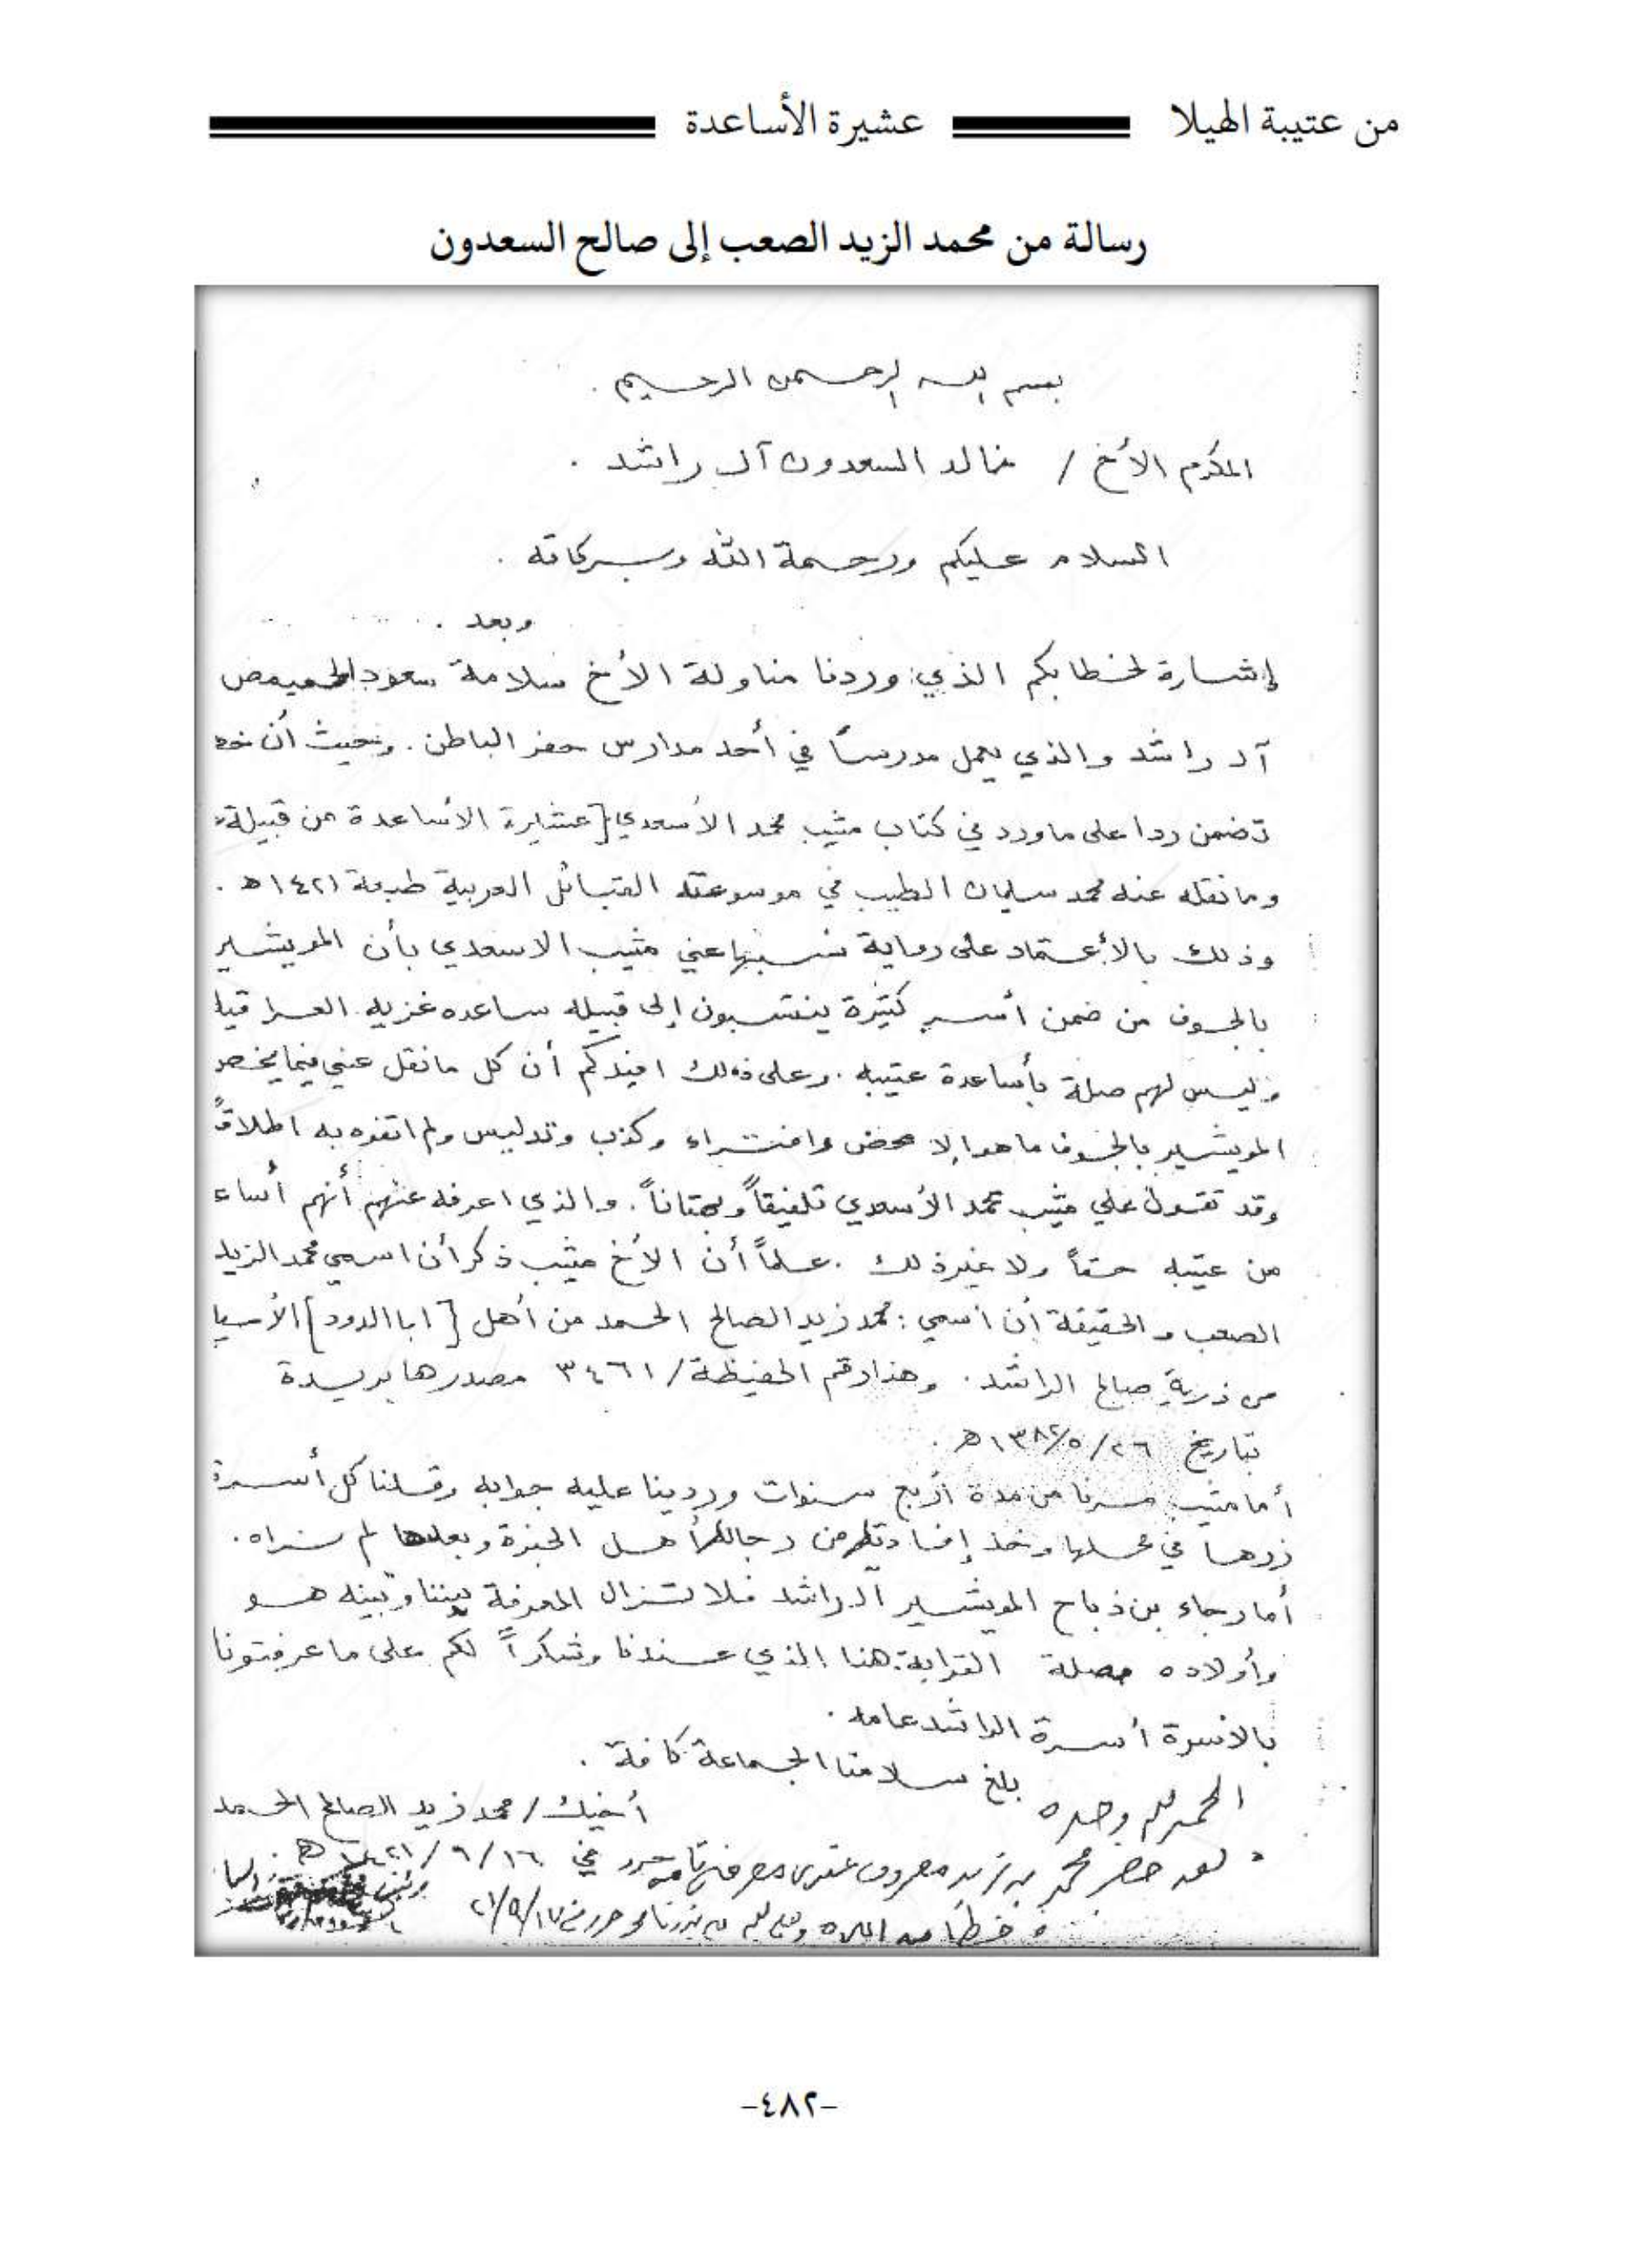 من عتيبة الهيلا
عشيرة الأساعدة
رسالة من محمد الزيد الصعب إلى صالح السعدون
بسم الله الرحمن الرحيم .
المكرم الأخ / خالد السعدون آل راشد .
السلام عليكم ورحمة الله وبركاته .
وبعد .
إشارة لخطابكم الذي وردنا مناولة الأخ سلامة سعود الحميمص
آل راشد والذي يعمل مدرساً في أحد مدارس حفر الباطن . وحيث أن
تضمن ردا على ماورد في كتاب مثيب محمد الأسعدي [عشيرة الأساعدة من قبيلة
وما نقله عنه محمد سليمان الطيب في موسوعته القبائل العربية طبعة ١٤٢١ ه .
وذلك بالأعتماد على رواية نسبها عني مثيب الاسعدي بأن المويشير
بالجوف من ضمن أسر كثيرة ينتسبون إلى قبيله ساعده غزيه العراقيه
وليس لهم صلة بأساعدة عتيبه . وعلى ذلك افيدكم أن كل مانقل عني فيما يخص
المويشير بالجوف ماهو إلا محض وافتراء وكذب وتدليس ولم اتفوه به اطلاقاً
وقد تقول علي مثيب محمد الأسعدي تلفيقاً وبهتاناً . والذي اعرفه عنهم أنهم أساء
من عتيبه حقاً ولا غير ذلك . علماً أن الأخ مثيب ذكر أن اسمي محمد الزيد
الصعب والحقيقة أن اسمي : محمد زيد الصالح الحمد من أهل [ ابا الدود ] الأسيا
من ذرية صالح الراشد . وهذا رقم الحفيظة / ٣٤٦١ مصدرها بريدة
بتاريخ ١٣٨٢/٥/٢٦ ه .
أما مثيب مرنا من مدة أربع سنوات وردينا عليه جوابه وقلنا كل أسرة
زرها في محلها وخذ إفادتك من رجالها أهل الخبرة وبعدها لم نراه .
أما رجاء بن ذباح المويشير آل راشد فلا تزال المعرفة بيننا وبينه هو
وأولاده وصلة القرابة . هنا الذي عندنا وشكراً لكم على ما عرفتونا
بالاسرة أسرة الراشد عامه .
بلغ سلامنا الجماعة كافة .
الحمد لله وحده
أخيك / محمد زيد الصالح الحمد
لقد حضر محمد بن زيد
حرر في ١٤٢١/٩/١٦ ه
٢١/٩/١٧
-٤٨٢-